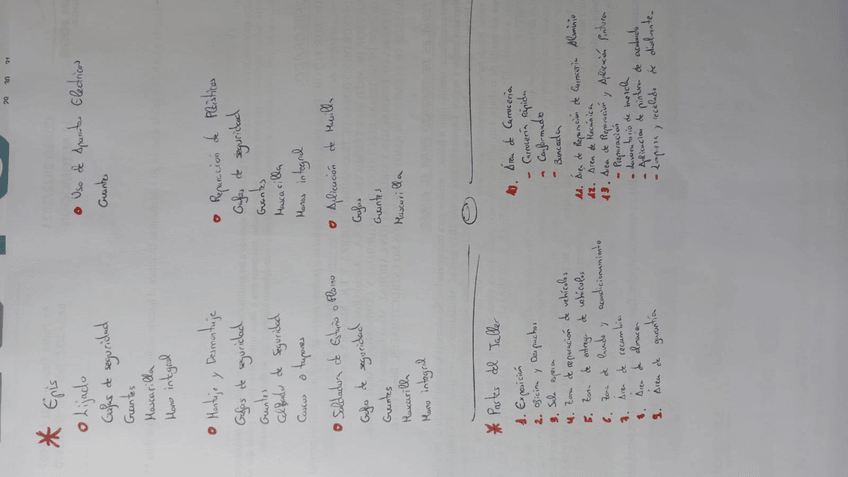 * Epis
• Lijado
Gafas de seguridad
Guantes
Mascarilla
Mono integral
• Uso de Aparatos Electricos
Guantes
• Montaje y Desmontaje
Gafas de seguridad
Guantes
Calzado de Seguridad
Cascos o tapones
• Reparación de Plásticos
Gafas de seguridad
Guantes
Mascarilla
Mono integral
• Soldadura de Estaño o Plomo
Gafas de seguridad
Guantes
Mascarilla
Mono integral
• Aplicación de Masilla
Gafas
Guantes
Mascarilla
* Partes del Taller
1. Exposición
2. Oficina y Despachos
3. Sala espera
4. Zona de reparación de vehículos
5. Zona de entrega de vehículos
6. Zona de lavado y acondicionamiento
7. Área de recambios
8. Área de almacen
9. Área de garantía
10. Área de Carrocería
- Carrocería rápida
- Conformado
- Bancada
11. Área de Reparación de Carrocería Aluminio
12. Área de Mecánica
13. Área de Preparación y Aplicación Pintura
- Preparación
- Laboratorio de mezcla
- Aplicación de pintura de acabado
- Limpieza y reciclado de disolvente.